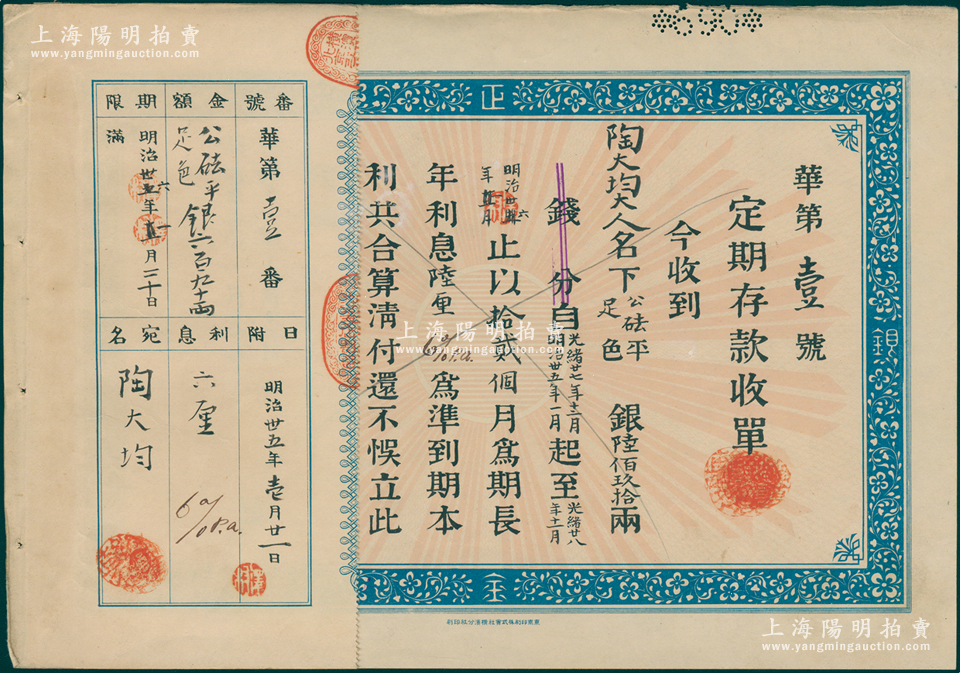 華第壹號
定期存款收單
今收到
陶大均大人名下公砝平足色銀陸佰玖拾兩
錢分自光緒廿七年十二月明治卅五年一月起至光緒廿八年十二月
明治卅六年一月止以拾貳個月為期長
年利息陸厘6%p.a.為準到期本
利共合算清付還不悞立此
正
銀
金
690
番號
華第壹番
金額
公砝平銀六百九十兩
足色
期限
明治卅六年一月二十日
滿
日附
明治卅五年壹月廿一日
利息
六厘
6%p.a.
宛名
陶大均
上海陽明拍賣
www.yangmingauction.com
上海陽明拍賣
www.yangmingauction.com
上海陽明拍賣
www.yangmingauction.com
上海陽明拍賣
www.yangmingauction.com